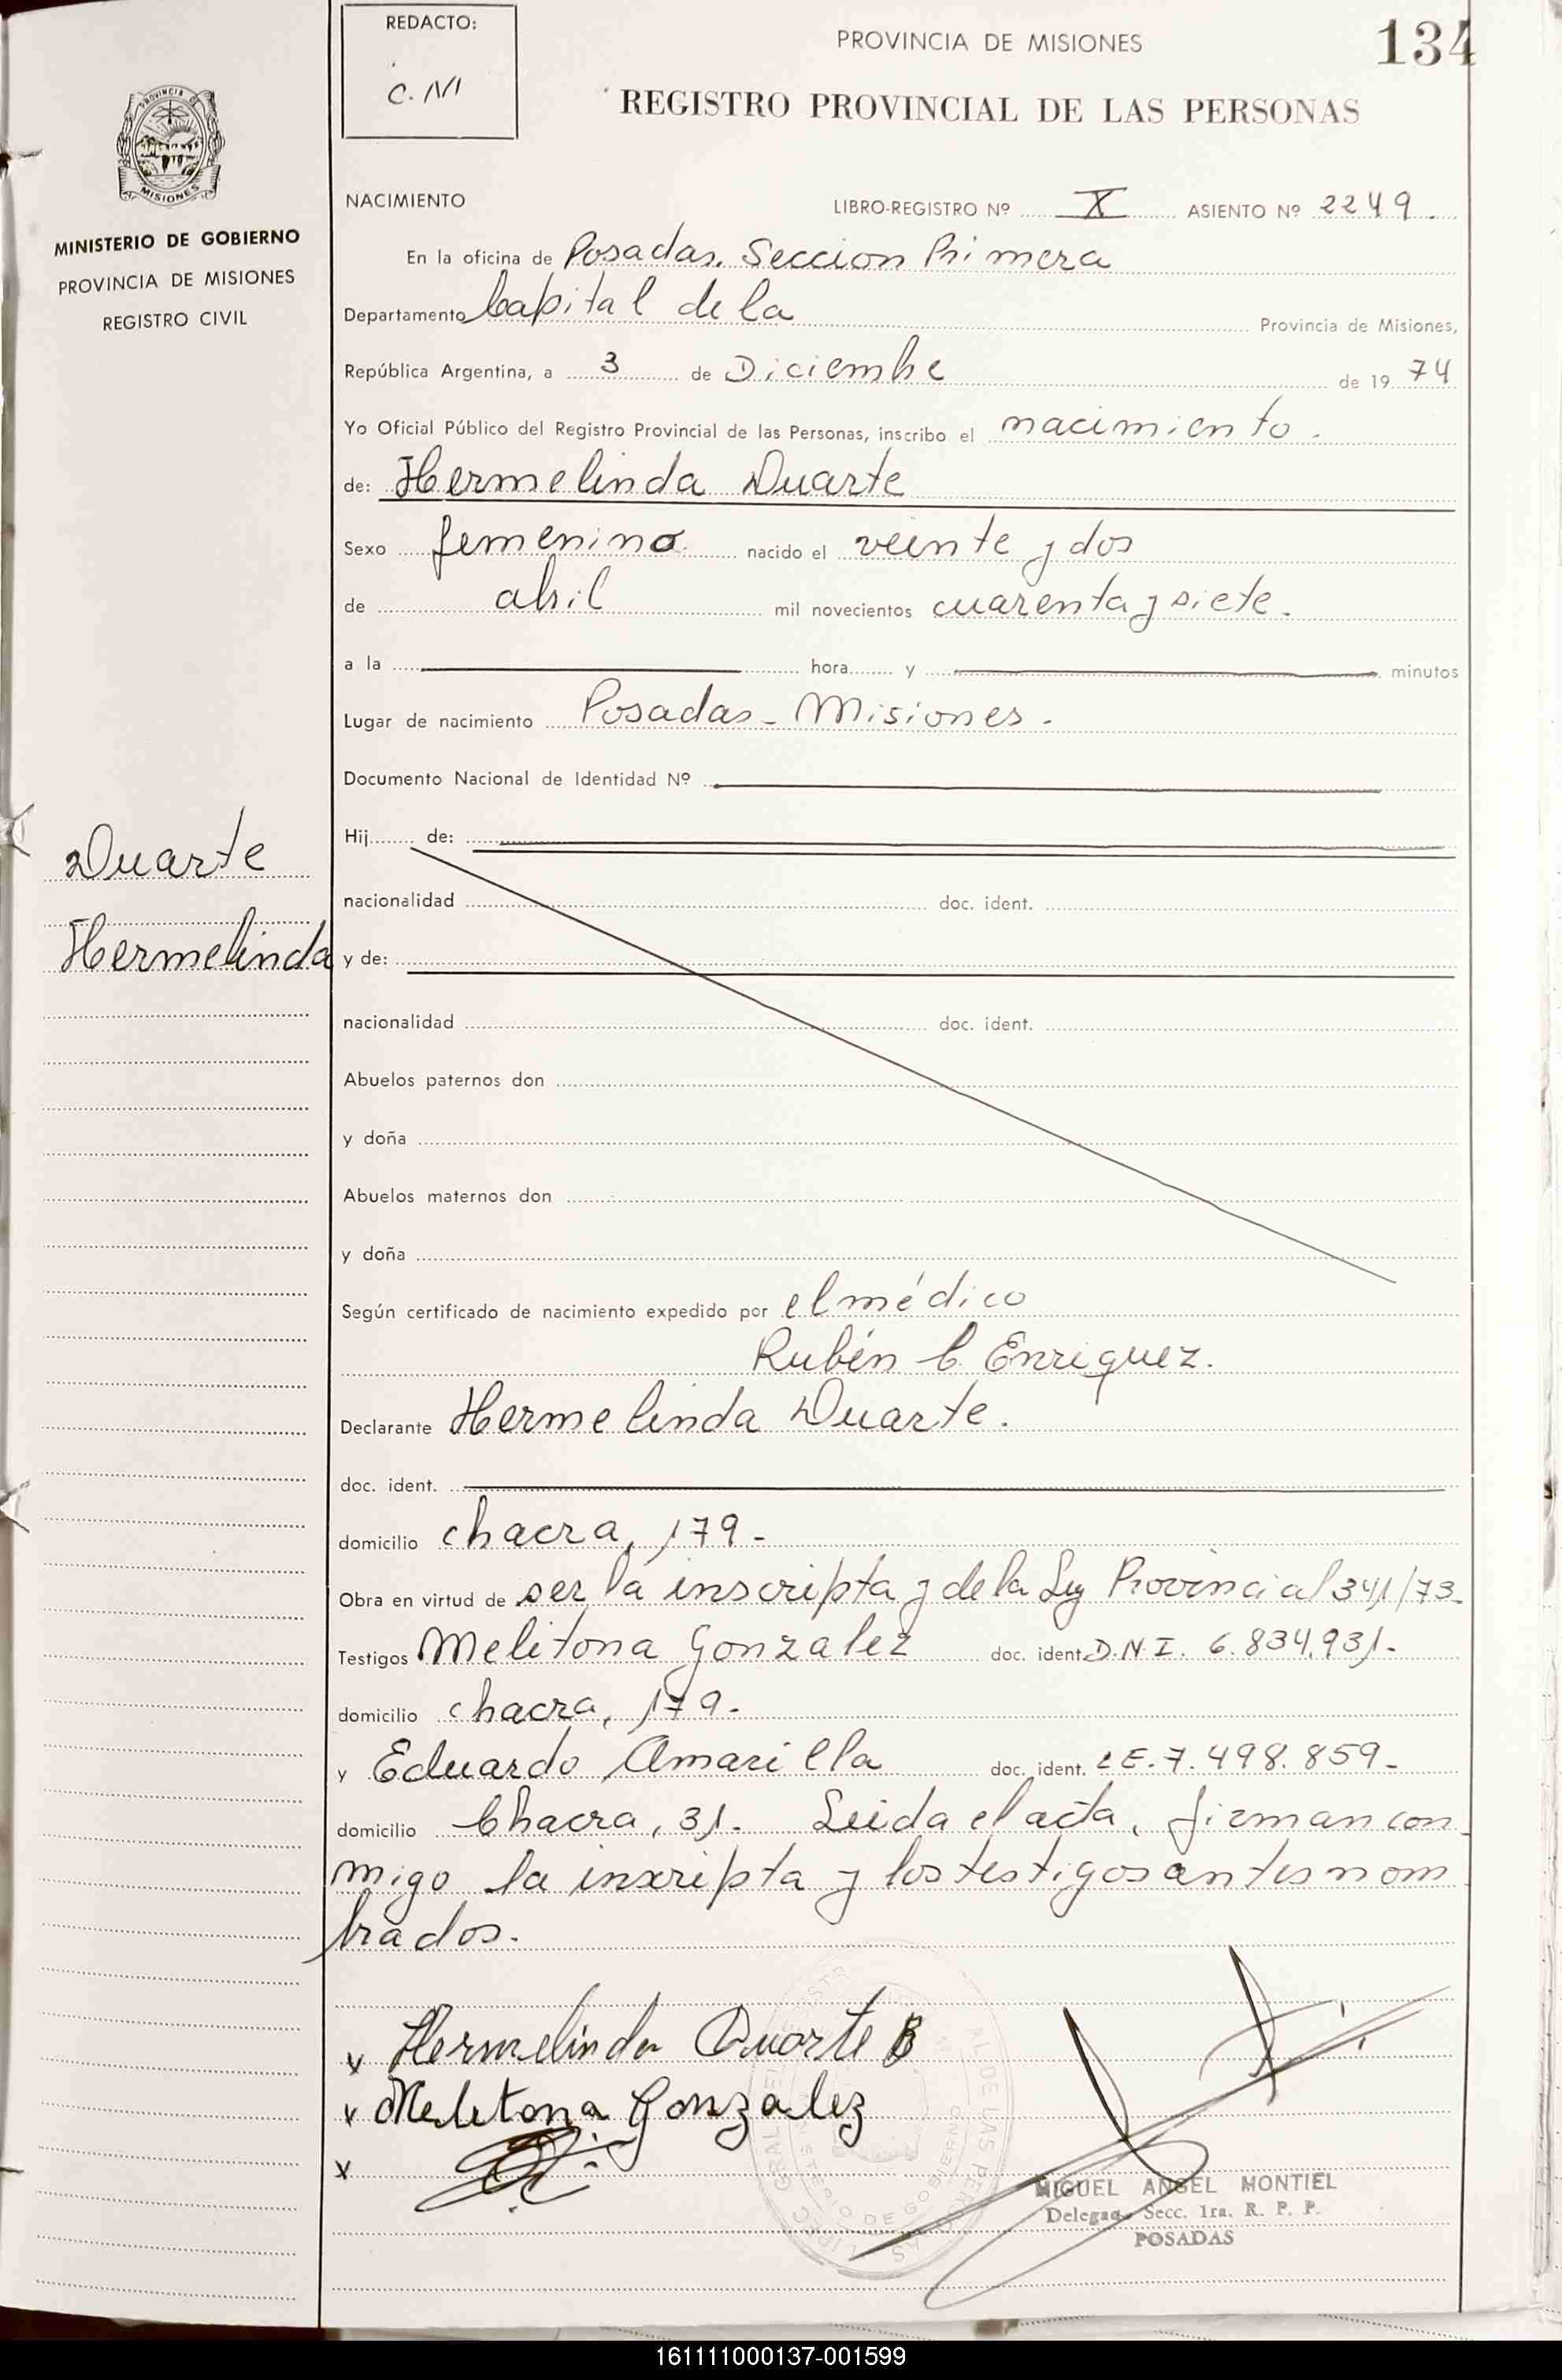 REDACTO:
C. M
PROVINCIA DE MISIONES
134
REGISTRO PROVINCIAL DE LAS PERSONAS
PROVINCIA
MISIONES
MINISTERIO DE GOBIERNO
PROVINCIA DE MISIONES
REGISTRO CIVIL
NACIMIENTO
LIBRO-REGISTRO Nº X ASIENTO Nº 2249.
En la oficina de Posadas. Seccion Primera
Departamento Capital de la Provincia de Misiones,
República Argentina, a 3 de Diciembre de 19 74
Yo Oficial Público del Registro Provincial de las Personas, inscribo el nacimiento.
de: Hermelinda Duarte
Sexo femenino nacido el veinte y dos
de abril mil novecientos cuarenta y siete.
a la hora y minutos
Lugar de nacimiento Posadas - Misiones.
Documento Nacional de Identidad Nº
Hij de:
Duarte
nacionalidad doc. ident.
Hermelinda
y de:
nacionalidad doc. ident.
Abuelos paternos don
y doña
Abuelos maternos don
y doña
Según certificado de nacimiento expedido por el médico
Rubén C. Enriquez.
Declarante Hermelinda Duarte.
doc. ident.
domicilio chacra, 179-
Obra en virtud de ser la inscripta y de la Ley Provincial 341/73
Testigos Melitona Gonzalez doc. ident. D.N.I. 6.834.931-
domicilio chacra, 179.
y Eduardo Amarilla doc. ident. LE. 7.498.859-
domicilio Chacra, 31. Leida el acta, firman con
migo la inscripta y los testigos antes nom
brados.
x Hermelinda Duarte B
x Melitona Gonzalez
x
MIGUEL ANGEL MONTIEL
Delegado Secc. 1ra. R. P. P.
POSADAS
161111000137-001599